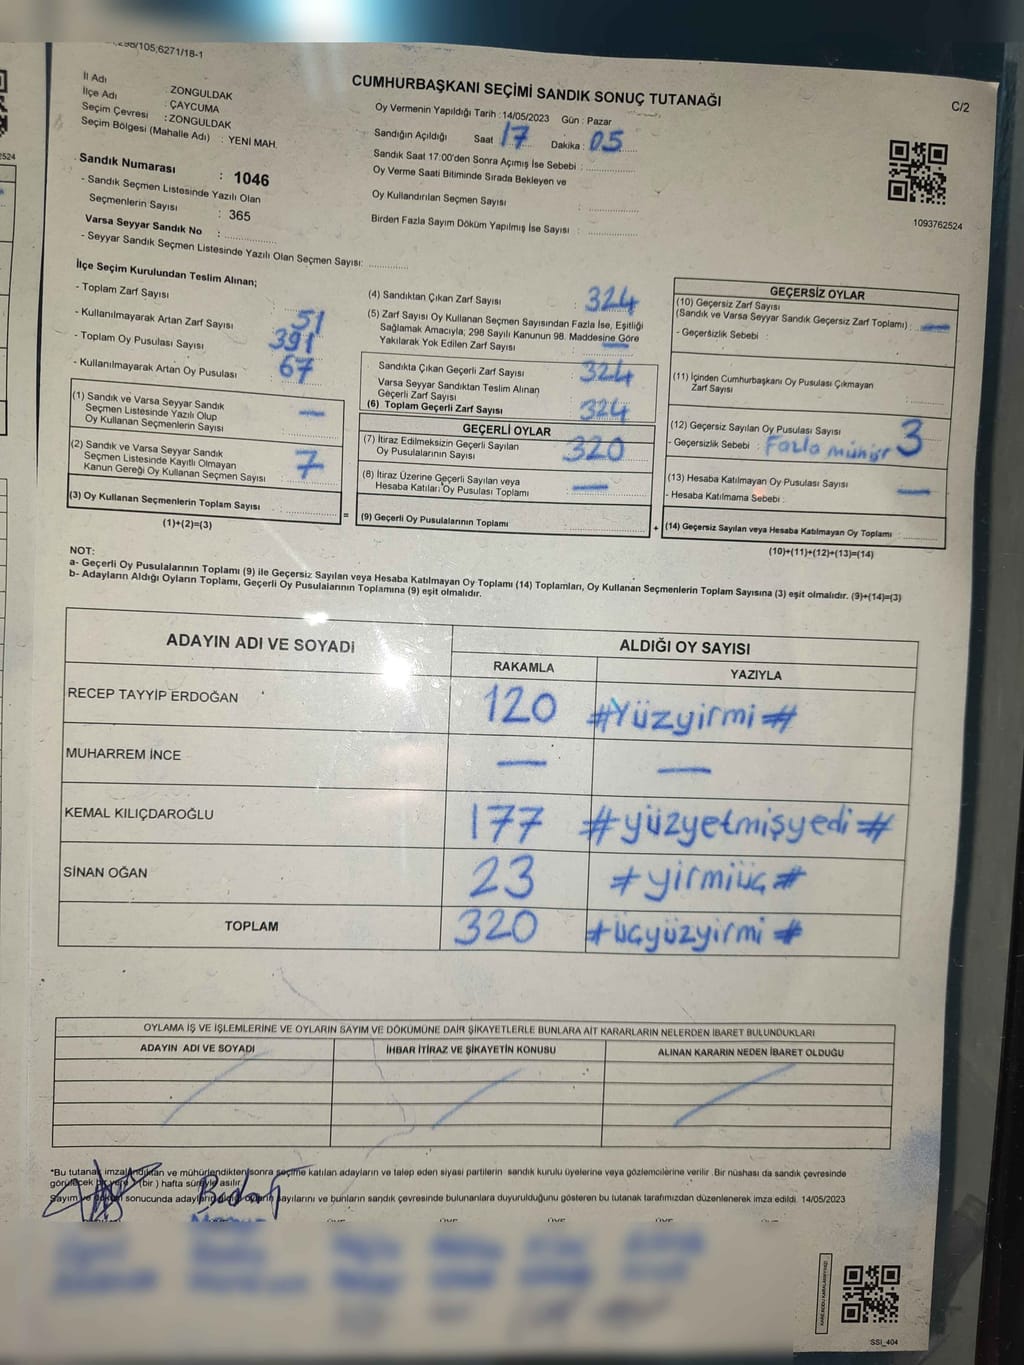 298/105;6271/18-1
CUMHURBAŞKANI SEÇİMİ SANDIK SONUÇ TUTANAĞI
C/2
İl Adı : ZONGULDAK
İlçe Adı : ÇAYCUMA
Seçim Çevresi : ZONGULDAK
Seçim Bölgesi (Mahalle Adı) : YENİ MAH.
Sandık Numarası : 1046
- Sandık Seçmen Listesinde Yazılı Olan
Seçmenlerin Sayısı : 365
Varsa Seyyar Sandık No :
- Seyyar Sandık Seçmen Listesinde Yazılı Olan Seçmen Sayısı:
Oy Vermenin Yapıldığı Tarih : 14/05/2023 Gün : Pazar
Sandığın Açıldığı Saat 17 Dakika : 05
Sandık Saat 17:00'den Sonra Açımış İse Sebebi :
Oy Verme Saati Bitiminde Sırada Bekleyen ve
Oy Kullandırılan Seçmen Sayısı :
Birden Fazla Sayım Döküm Yapılmış İse Sayısı :
1093762524
2524
İlçe Seçim Kurulundan Teslim Alınan;
- Toplam Zarf Sayısı :
- Kullanılmayarak Artan Zarf Sayısı : 51
- Toplam Oy Pusulası Sayısı : 391
- Kullanılmayarak Artan Oy Pusulası : 67
(1) Sandık ve Varsa Seyyar Sandık
Seçmen Listesinde Yazılı Olup
Oy Kullanan Seçmenlerin Sayısı : —
(2) Sandık ve Varsa Seyyar Sandık
Seçmen Listesinde Kayıtlı Olmayan
Kanun Gereği Oy Kullanan Seçmen Sayısı : 7
(3) Oy Kullanan Seçmenlerin Toplam Sayısı :
(1)+(2)=(3)
(4) Sandıktan Çıkan Zarf Sayısı : 324
(5) Zarf Sayısı Oy Kullanan Seçmen Sayısından Fazla İse, Eşitliği
Sağlamak Amacıyla; 298 Sayılı Kanunun 98. Maddesine Göre
Yakılarak Yok Edilen Zarf Sayısı : —
Sandıkta Çıkan Geçerli Zarf Sayısı : 324
Varsa Seyyar Sandıktan Teslim Alınan
Geçerli Zarf Sayısı :
(6) Toplam Geçerli Zarf Sayısı : 324
GEÇERLİ OYLAR
(7) İtiraz Edilmeksizin Geçerli Sayılan
Oy Pusulalarının Sayısı : 320
(8) İtiraz Üzerine Geçerli Sayılan veya
Hesaba Katılan Oy Pusulası Toplamı : —
= (9) Geçerli Oy Pusulalarının Toplamı :
GEÇERSİZ OYLAR
(10) Geçersiz Zarf Sayısı
(Sandık ve Varsa Seyyar Sandık Geçersiz Zarf Toplamı) : —
- Geçersizlik Sebebi :
(11) İçinden Cumhurbaşkanı Oy Pusulası Çıkmayan
Zarf Sayısı :
(12) Geçersiz Sayılan Oy Pusulası Sayısı : 3
- Geçersizlik Sebebi : Fazla mühür
(13) Hesaba Katılmayan Oy Pusulası Sayısı : —
- Hesaba Katılmama Sebebi :
+ (14) Geçersiz Sayılan veya Hesaba Katılmayan Oy Toplamı :
(10)+(11)+(12)+(13)=(14)
NOT:
a- Geçerli Oy Pusulalarının Toplamı (9) ile Geçersiz Sayılan veya Hesaba Katılmayan Oy Toplamı (14) Toplamları, Oy Kullanan Seçmenlerin Toplam Sayısına (3) eşit olmalıdır. (9)+(14)=(3)
b- Adayların Aldığı Oyların Toplamı, Geçerli Oy Pusulalarının Toplamına (9) eşit olmalıdır.
ADAYIN ADI VE SOYADI ALDIĞI OY SAYISI
RAKAMLA YAZIYLA
RECEP TAYYİP ERDOĞAN 120 #Yüzyirmi#
MUHARREM İNCE — —
KEMAL KILIÇDAROĞLU 177 #yüzyetmişyedi#
SİNAN OĞAN 23 #yirmiüç#
TOPLAM 320 #üçyüzyirmi#
OYLAMA İŞ VE İŞLEMLERİNE VE OYLARIN SAYIM VE DÖKÜMÜNE DAİR ŞİKAYETLERLE BUNLARA AİT KARARLARIN NELERDEN İBARET BULUNDUKLARI
ADAYIN ADI VE SOYADI İHBAR İTİRAZ VE ŞİKAYETİN KONUSU ALINAN KARARIN NEDEN İBARET OLDUĞU
*Bu tutanak imzalandıktan ve mühürlendikten sonra seçime katılan adayların ve talep eden siyasi partilerin sandık kurulu üyelerine veya gözlemcilerine verilir. Bir nüshası da sandık çevresinde
görülecek bir yere 1 (bir) hafta süreyle asılır.
Sayım ve döküm sonucunda adayların aldığı oyların sayılarını ve bunların sandık çevresinde bulunanlara duyurulduğunu gösteren bu tutanak tarafımızdan düzenlenerek imza edildi. 14/05/2023
SSI_404